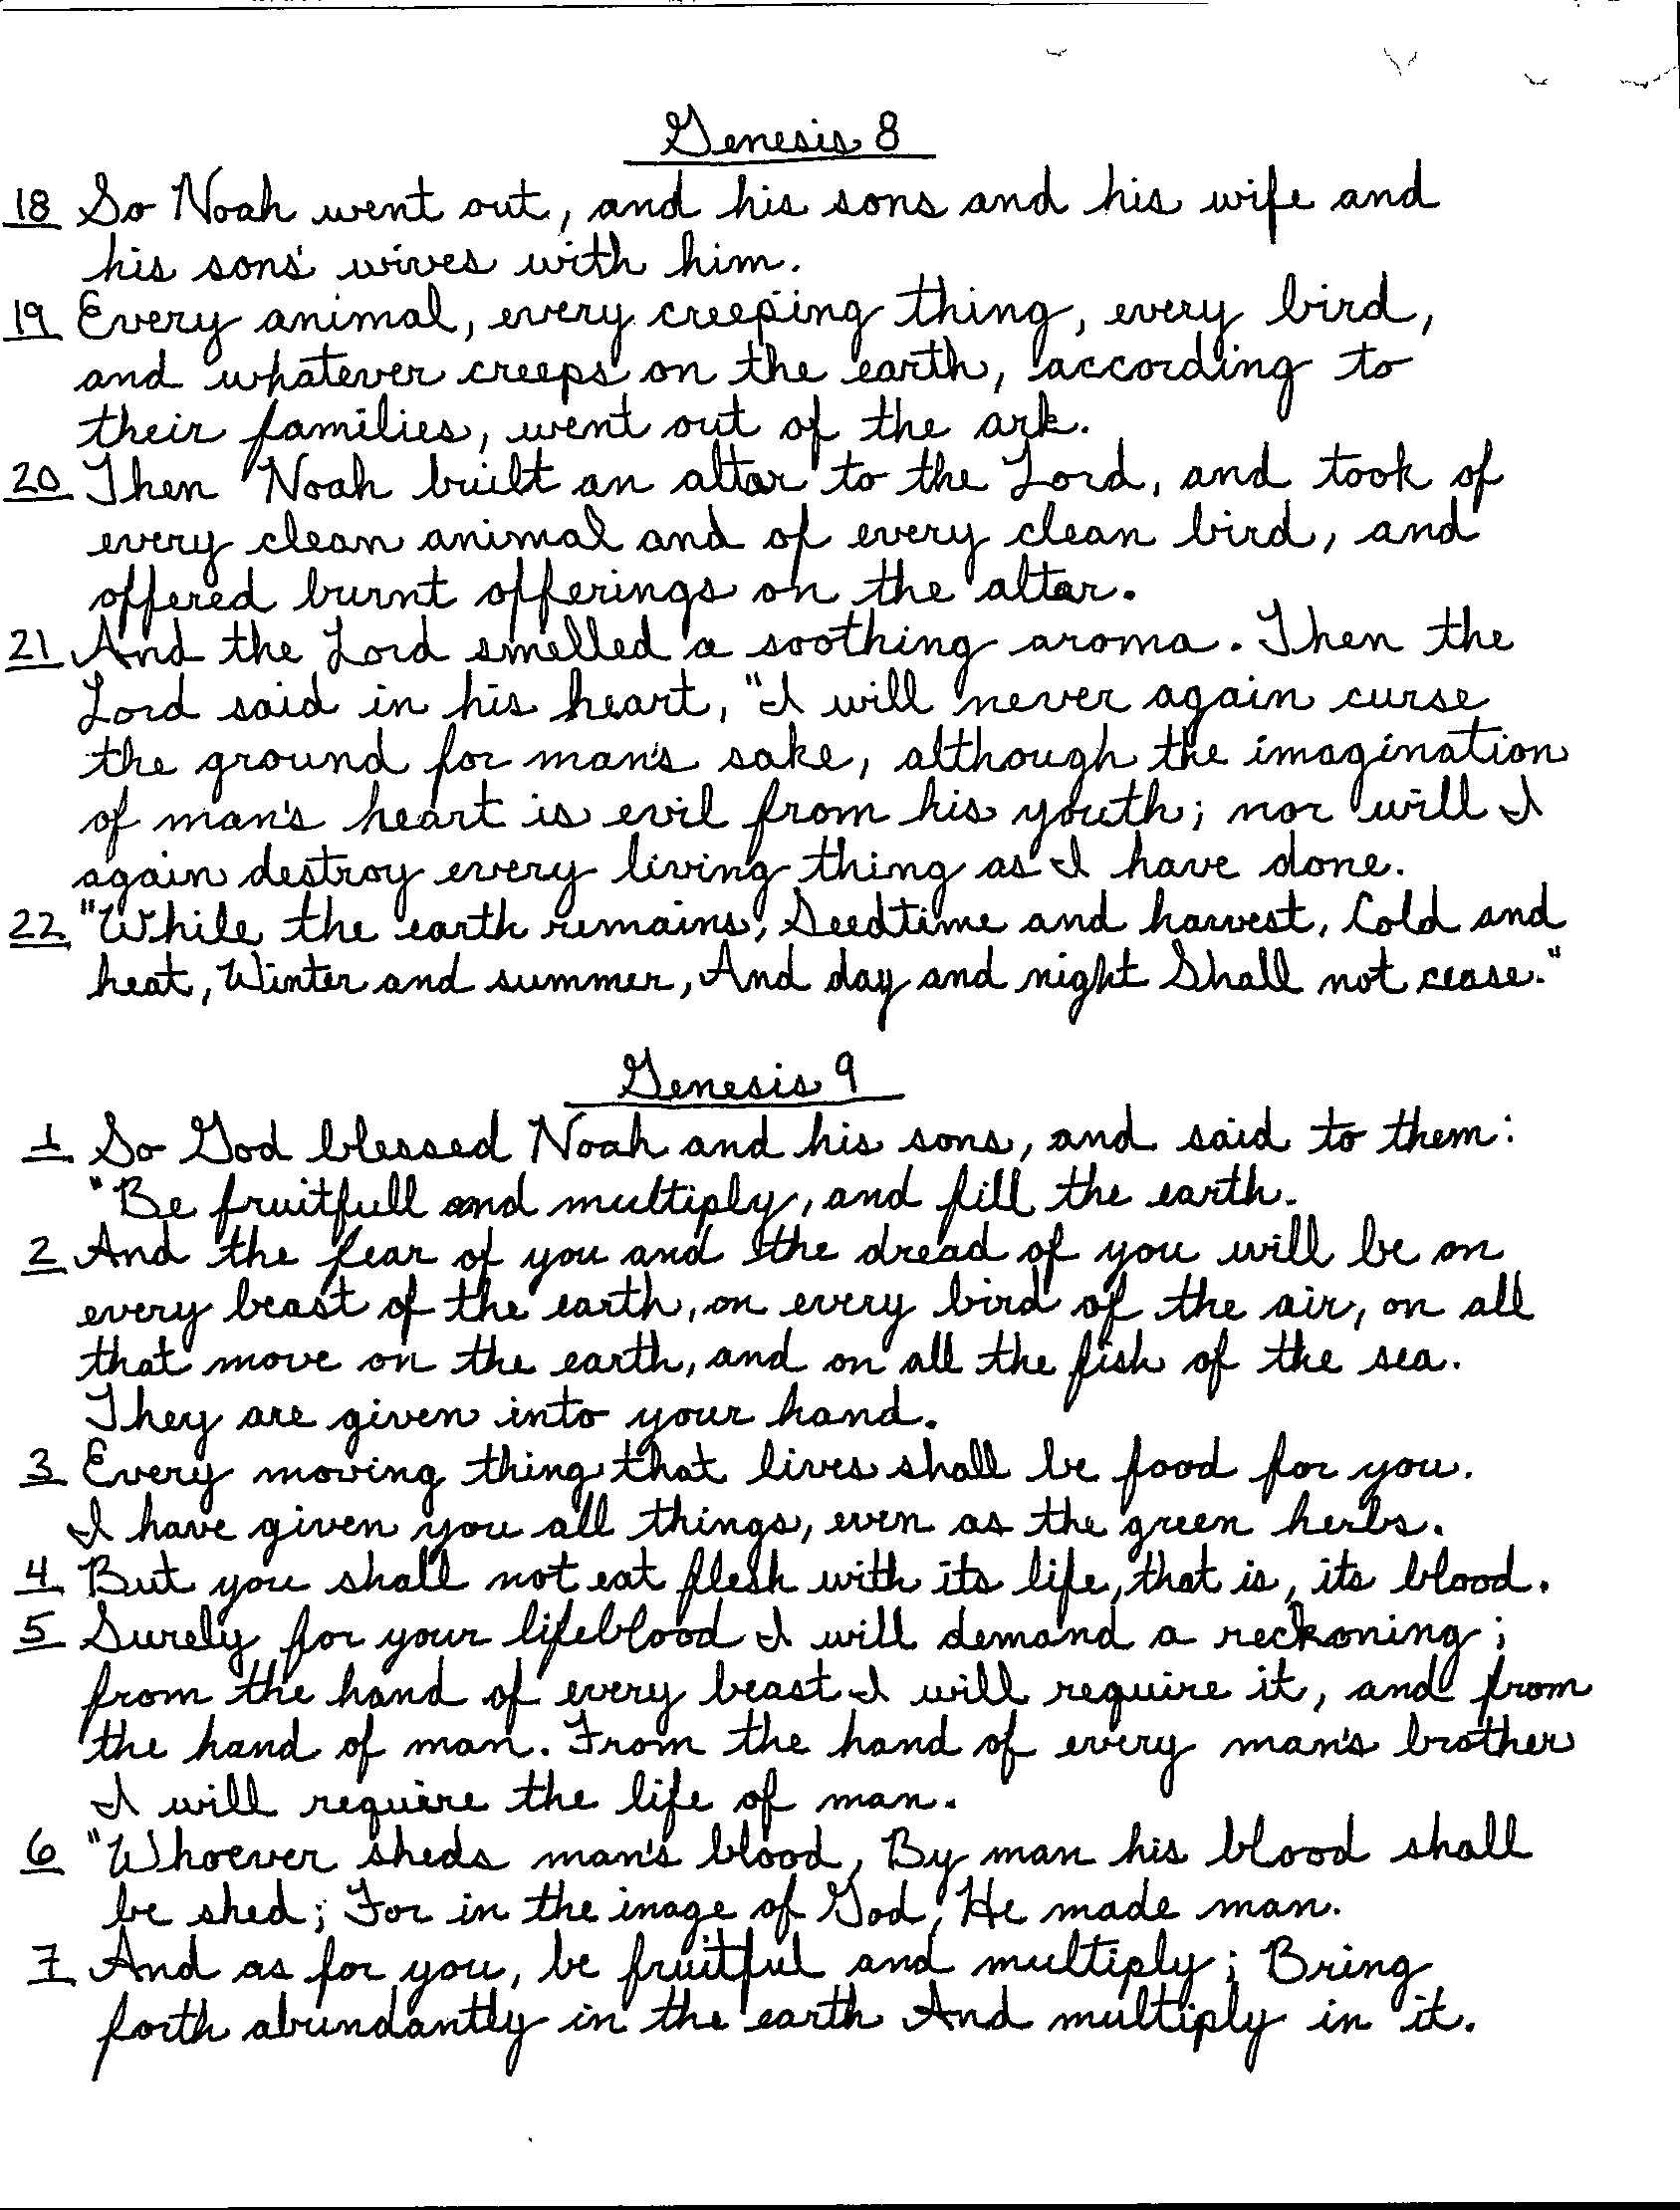 Genesis 8
18 So Noah went out, and his sons and his wife and
his sons' wives with him.
19 Every animal, every creeping thing, every bird,
and whatever creeps on the earth, according to
their families, went out of the ark.
20 Then Noah built an altar to the Lord, and took of
every clean animal and of every clean bird, and
offered burnt offerings on the altar.
21 And the Lord smelled a soothing aroma. Then the
Lord said in his heart, "I will never again curse
the ground for man's sake, although the imagination
of man's heart is evil from his youth; nor will I
again destroy every living thing as I have done.
22 "While the earth remains, Seedtime and harvest, Cold and
heat, Winter and summer, And day and night Shall not cease."
Genesis 9
1 So God blessed Noah and his sons, and said to them:
"Be fruitfull and multiply, and fill the earth.
2 And the fear of you and the dread of you will be on
every beast of the earth, on every bird of the air, on all
that move on the earth, and on all the fish of the sea.
They are given into your hand.
3 Every moving thing that lives shall be food for you.
I have given you all things, even as the green herbs.
4 But you shall not eat flesh with its life, that is, its blood.
5 Surely for your lifeblood I will demand a reckoning;
from the hand of every beast I will require it, and from
the hand of man. From the hand of every man's brother
I will require the life of man.
6 "Whoever sheds man's blood, By man his blood shall
be shed; For in the inage of God, He made man.
7 And as for you, be fruitful and multiply; Bring
forth abundantly in the earth And multiply in it.